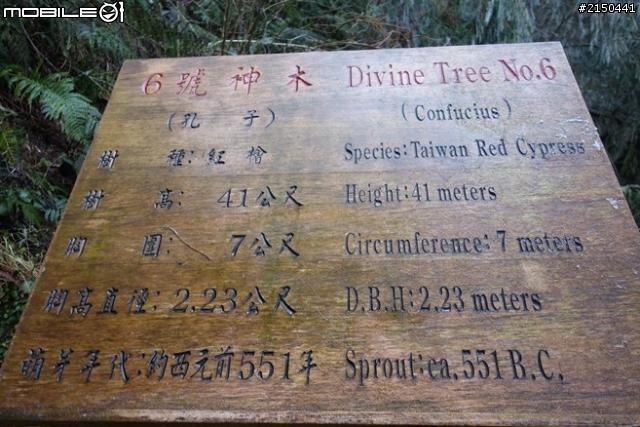 MOBILE01
#2150441
6號神木 Divine Tree No.6
(孔子) (Confucius)
樹種:紅檜 Species:Taiwan Red Cypress
樹高:41公尺 Height:41 meters
胸圍:7公尺 Circumference:7 meters
胸高直徑:2.23公尺 D.B.H:2.23 meters
萌芽年代:約西元前551年 Sprout:ca.551B.C.